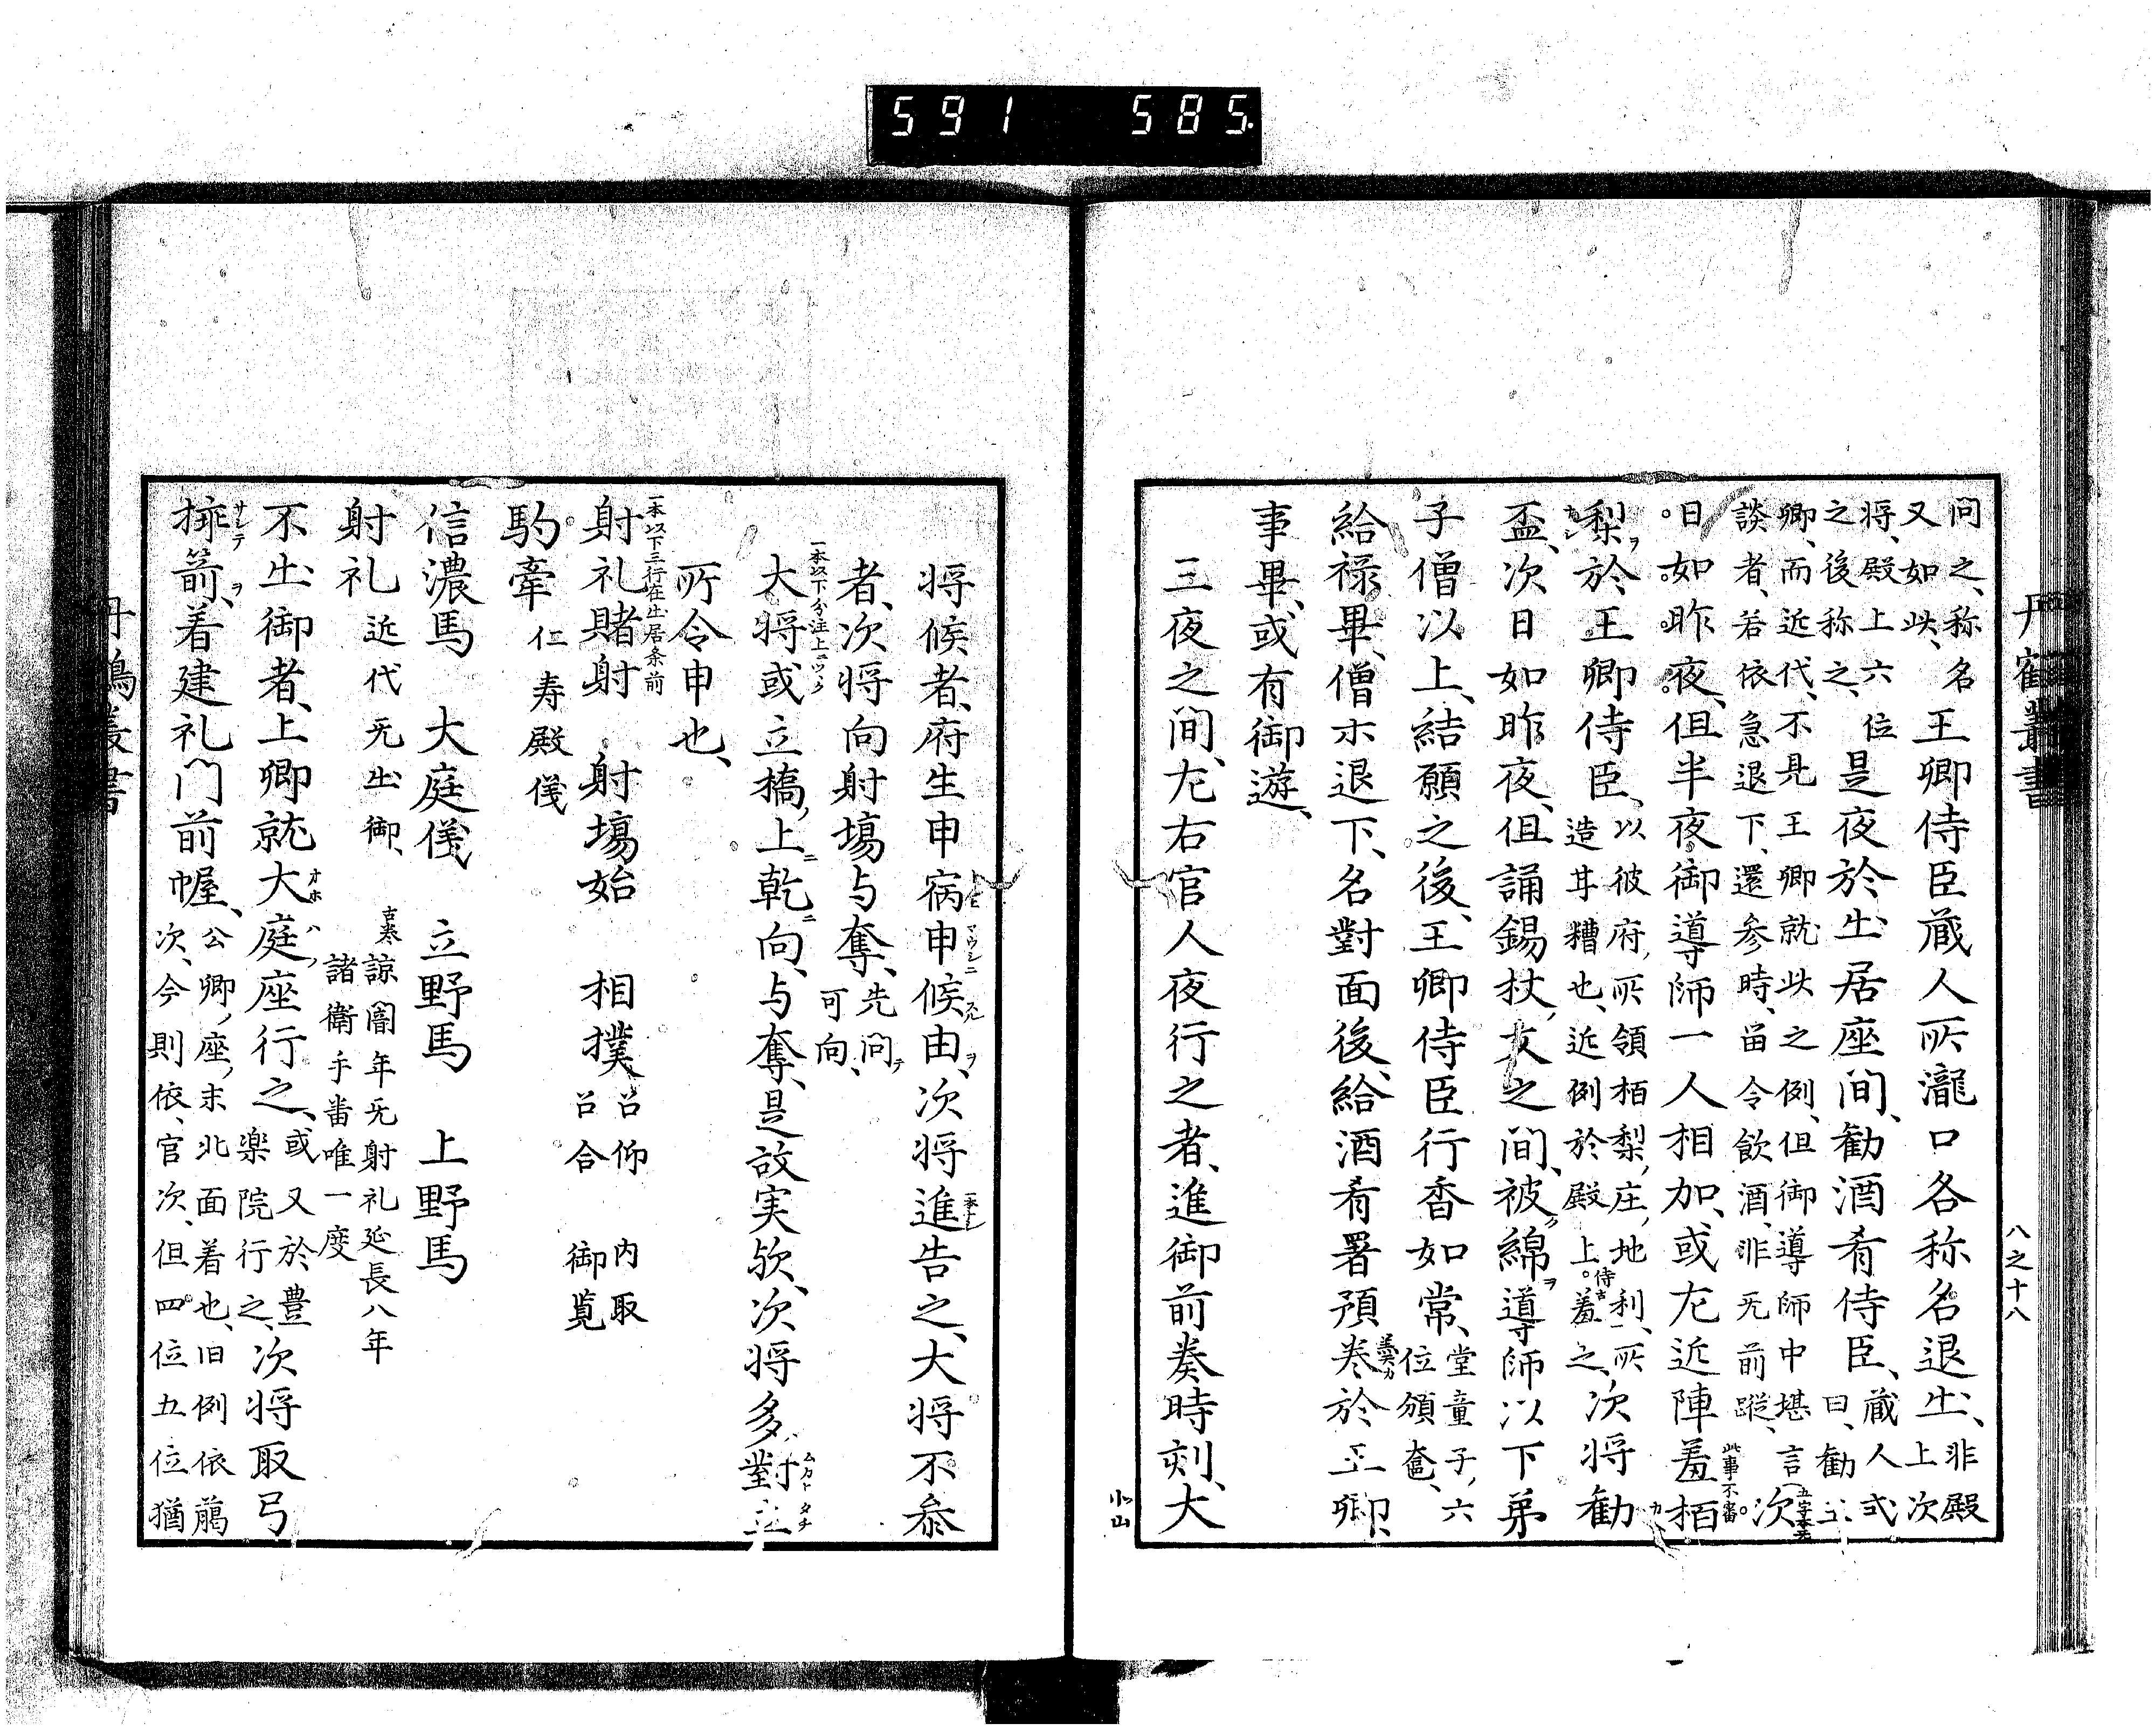 591 585
丹鶴叢書
八之十八
問之、称名王卿侍臣蔵人所瀧口各称名退出、非殿上次
又如此、
将、殿上六位
之後称之、是夜於出居座間、勧酒肴侍臣、蔵人式
曰、勧
卿、而近代、不見王卿就此之例、但御導師中堪言次
談者、若依急退下、還参時、留令飲酒、非无前蹤、
五字一本无
日如昨夜、但半夜御導師一人相加、或左近陣羞栢
此事不審
梨、於王卿侍臣、以彼府所領栢梨庄地利、所
造甘糟也、近例於殿上侍羞之、次将勧
盃、次日如昨夜、但誦錫杖文之間、被綿導師以下弟
子僧以上、結願之後、王卿侍臣行香如常、堂童子、六
位頒奩、
給禄畢、僧亦退下、名對面後、給酒肴署預巻於王卿、
事畢、或有御遊、
三夜之間、左右官人夜行之者、進御前奏時刻、大
小山
将候者、府生申病申候由、次将進告之、大将不参
者、次将向射場与奪、先問
可向、
一本以下分注上ニツク
大将或立橋、上乾向、与奪、是故実欤、次将多對立
所令申也、
一本以下三行在出居条前
射礼賭射 射場始 相撲 召仰 内取
召合 御覧
駒牽 仁寿殿儀
信濃馬 大庭儀 立野馬 上野馬
射礼 近代无出御、 諒闇年无射礼延長八年
諸衛手番唯一度
不出御者、上卿就大庭座行之、或又於豊
楽院行之、次将取弓
挾箭、着建礼門前幄、公卿座末北面着也、旧例依﨟
次、今則依官次、但四位五位猶
丹鶴叢書